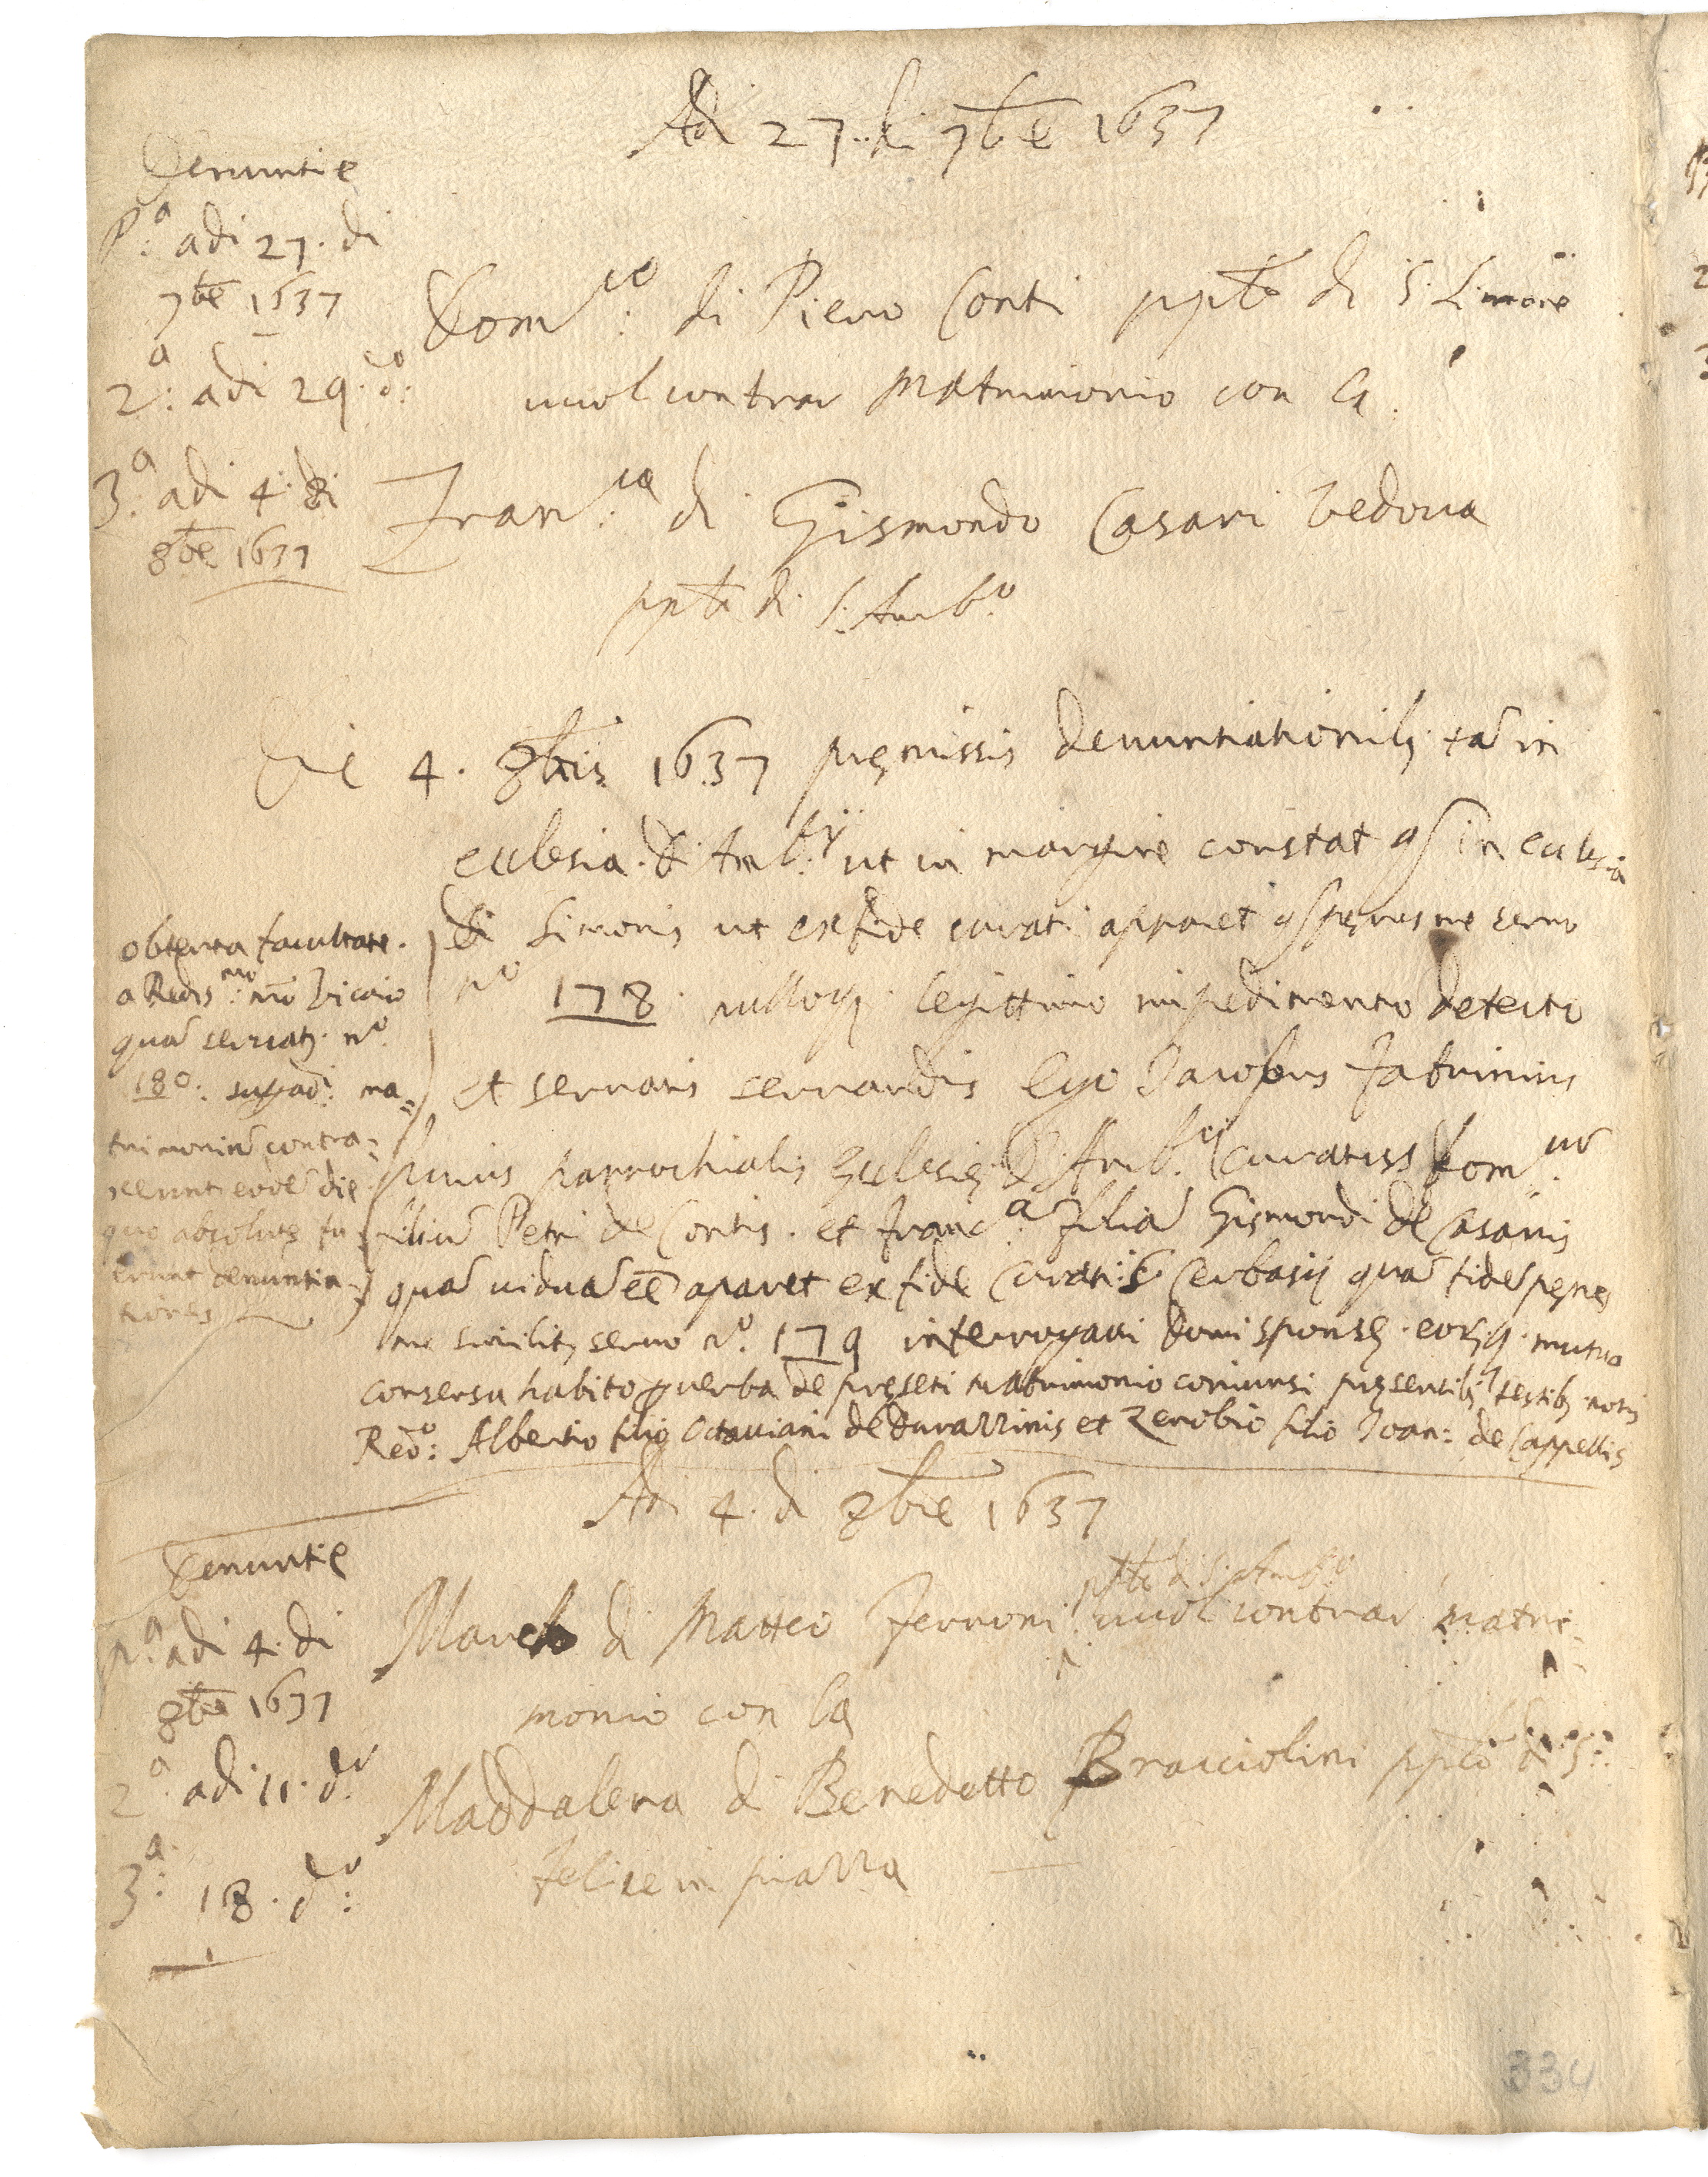 Adi 27. di 7bre 1637
Denuntie
P.a adi 27. di
7bre 1637
2.a: adi 29. d.o:
3.a: adi 4. di
8bre 1637
Dom.co: di Piero Conti pplo di S. Simone
vuol contrar Matrimonio con la
Fran.ca di Gismondo Casari Vedova
pplo di S. Amb.o
Die 4. 8bris 1637 premissis denuntiationib9 tam in
ecclesia D. Amb.ij ut in margine constat q in ecclesia
D. Simonis ut ex fide curati apparet penes me servo
n.o 178. nulloq legittimo impedimento detecto
et servatis servandis Ego Jacobus Fabrinius
huius parrochialis Ecclesie D. Amb.ij Curatus Dom.cum
filium Petri de Contis. et Franc.a filiam Gismondi de Casaris
quam viduam ee aparet ex fide Curati S. Cerbasij quam fidem penes
me similiter servo n.o 179 interrogavi domi sponse. eorq. mutuo
consensu habito p verba de preseti matrimonio coniunsi presentib9 testib9 notis
Redo: Albertio filio Octaviani de Durazzinis et Zenobio filio Joan: de Cappellis
obtenta facultate.
a Redis.mo: mo Vicaio
quam servat9. n.o
180. supad: ma=
trimonium contra=
xerunt eode die
quo absolute fu
erunt denuntia=
tiones
Adi 4. di 8bre 1637
Denuntie
P.a adi 4. di
8bre 1637
2.a adi 11. d.o
3.a: 18. d.o:
pplo di S. Amb.o
Marco di Matteo Ferroni vuol contrar matri
monio con la
Maddalena di Benedetto Bracciolini pplo di S.
Felice in piazza
334